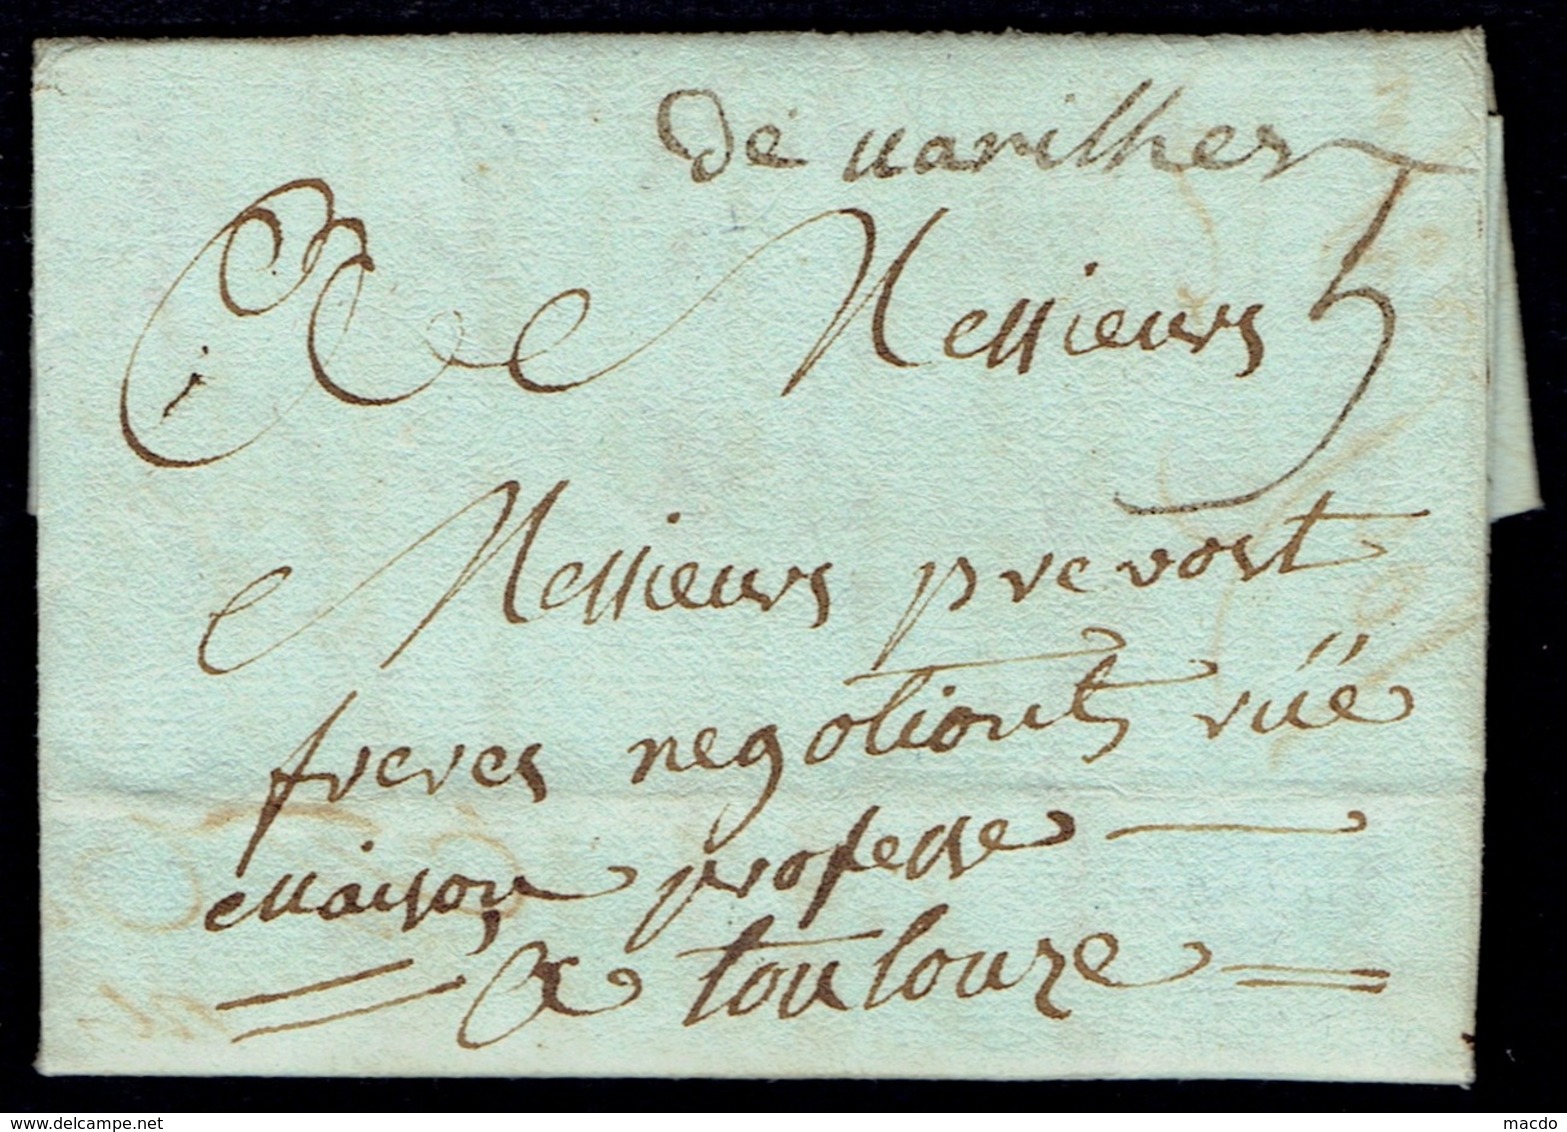 De varilhes
5
A Messieurs
Messieurs prevost
freres negotionts rüe
maison professe
a toulouze
macdo